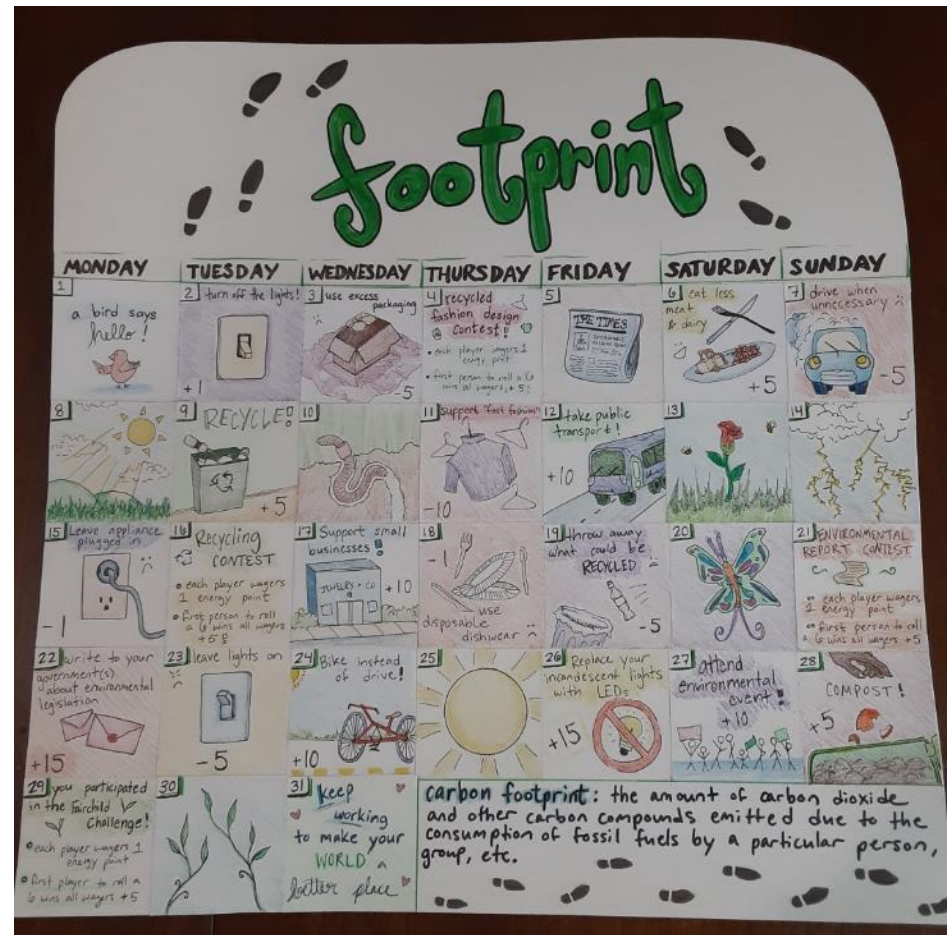 footprint
MONDAY TUESDAY WEDNESDAY THURSDAY FRIDAY SATURDAY SUNDAY
1
a bird says
hello!
2 turn off the lights!
+1
3 use excess
packaging
-5
4 recycled
fashion design
contest!
• each player wagers 1
energy point
• first person to roll a 6
wins all wagers, +5!
5
THE TIMES
6 eat less
meat
& dairy
+5
7 drive when
unnecessary
-5
8
9 RECYCLE!
+5
10
11 support "fast fashion"
-10
12 take public
transport!
+10
13
14
15 Leave appliance
plugged in
-1
16 Recycling
CONTEST
• each player wagers
1 energy point
• first person to roll
a 6 wins all wagers
+5!
17 Support small
businesses!
JEWELRS + CO
+10
18
-1
use
disposable
dishwear
19 throw away
what could be
RECYCLED
-5
20
21 ENVIRONMENTAL
REPORT CONTEST
• each player wagers
1 energy point
• first person to roll
a 6 wins all wagers +5
22 write to your
government(s)
about environmental
legislation
+15
23 leave lights on
-5
24 Bike instead
of drive!
+10
25
26 Replace your
incandescent lights
with LEDs
+15
27 attend
environmental
event!
+10
28
COMPOST!
+5
29 you participated
in the Fairchild
Challenge!
• each player wagers 1
energy point
• first player to roll a
6 wins all wagers +5
30
31 keep
working
to make your
WORLD a
better place
carbon footprint: the amount of carbon dioxide
and other carbon compounds emitted due to the
consumption of fossil fuels by a particular person,
group, etc.